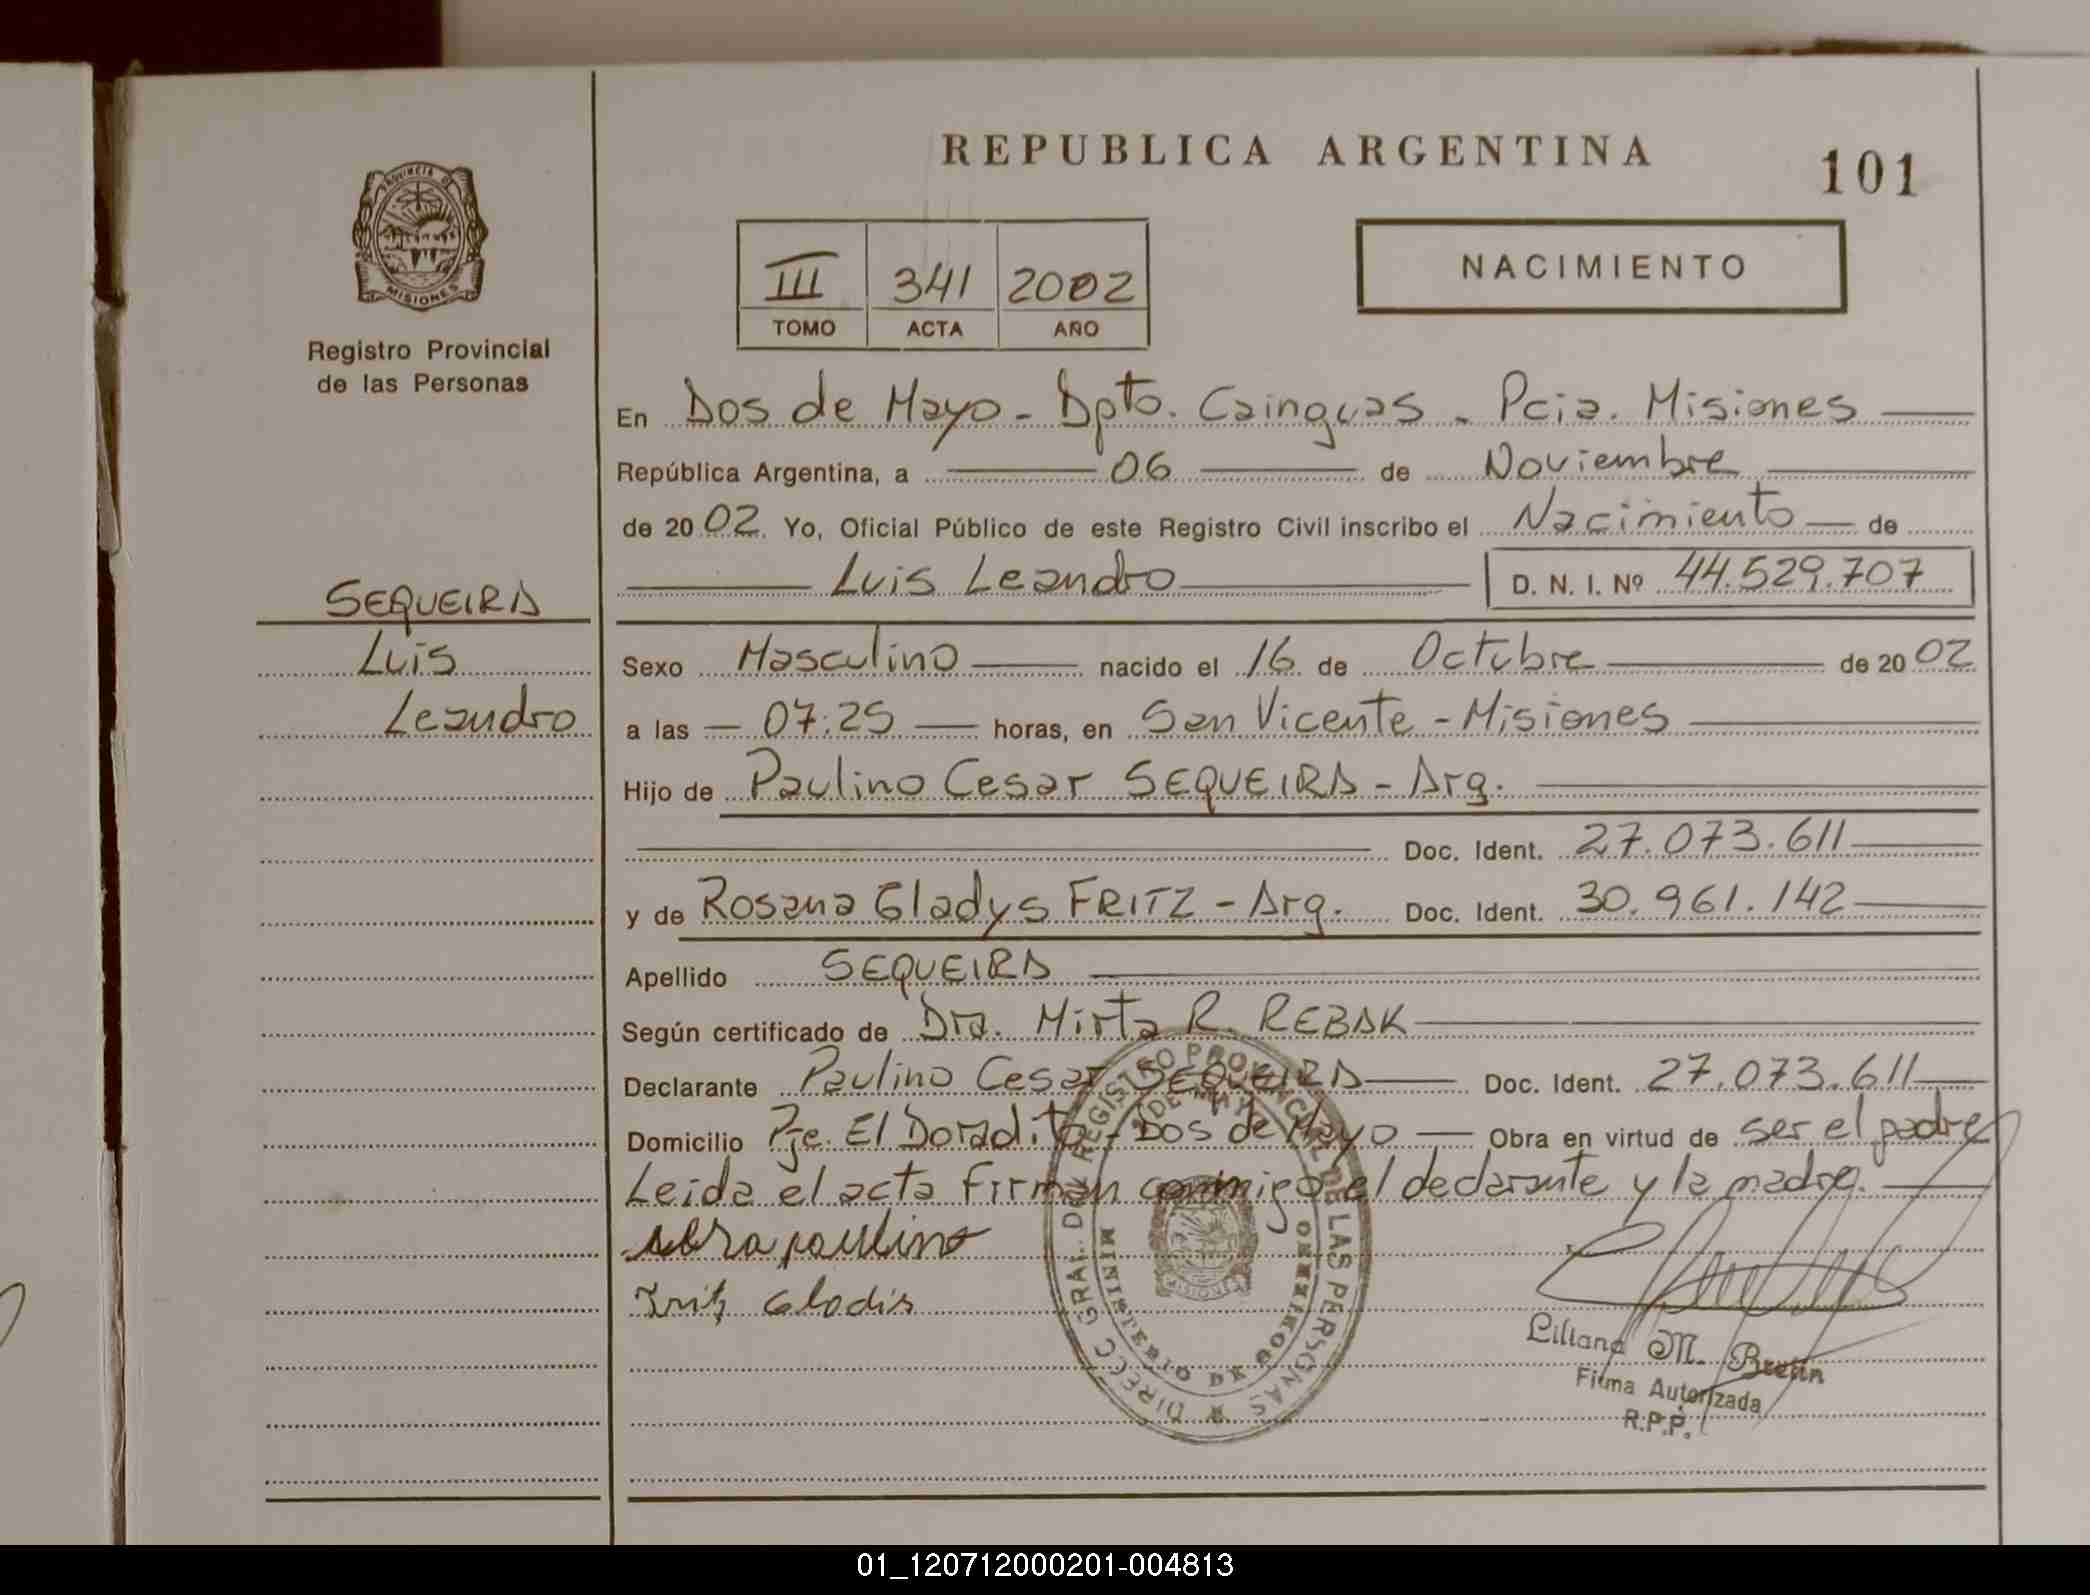 REPUBLICA ARGENTINA
101
PROVINCIA DE
MISIONES
Registro Provincial
de las Personas
III 341 2002
TOMO ACTA AÑO
NACIMIENTO
En Dos de Mayo - Dpto. Cainguas - Pcia. Misiones
República Argentina, a 06 de Noviembre
de 2002. Yo, Oficial Público de este Registro Civil inscribo el Nacimiento de
Luis Leandro D. N. I. Nº 44.529.707
SEQUEIRA
Luis
Leandro
Sexo Masculino nacido el 16 de Octubre de 2002
a las 07:25 horas, en San Vicente - Misiones
Hijo de Paulino Cesar SEQUEIRA - Arg.
Doc. Ident. 27.073.611
y de Rosana Gladys FRITZ - Arg. Doc. Ident. 30.961.142
Apellido SEQUEIRA
Según certificado de Dra. Mirta R. REBAK
Declarante Paulino Cesar SEQUEIRA Doc. Ident. 27.073.611
Domicilio Pje. El Doradito - Dos de Mayo Obra en virtud de ser el padre
Leida el acta firman conmigo el declarante y la madre.
paulino
Fritz Gladis
DIRECC GRAL. DEL REGISTRO PROVINCIAL DE LAS PERSONAS
MINISTERIO DE GOBIERNO
MISIONES
Liliana M.
Firma Autorizada
R.P.P.
01_120712000201-004813